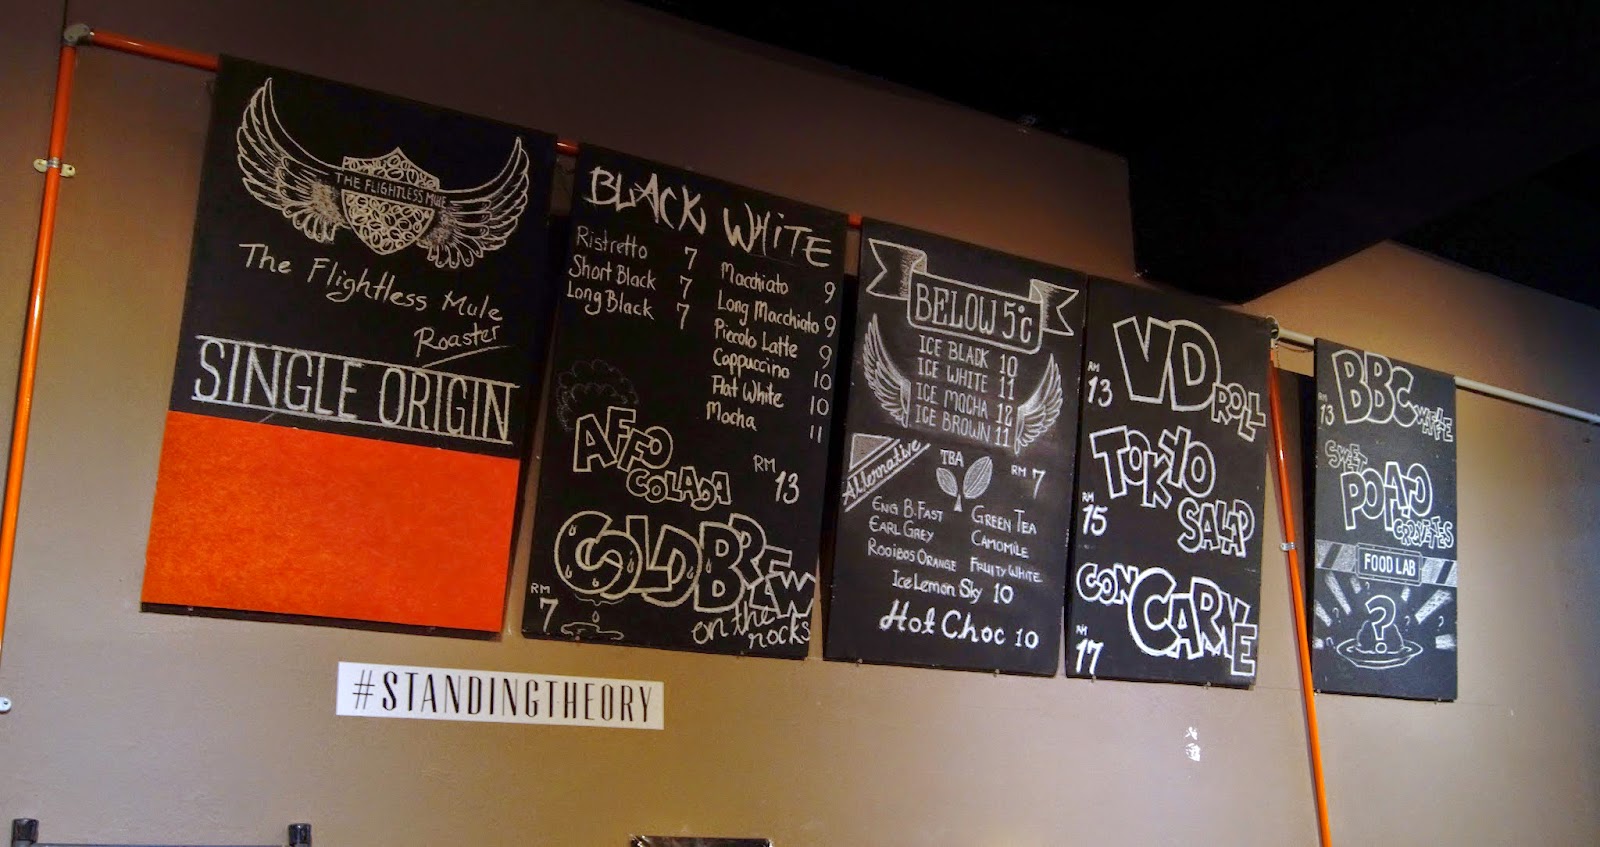 THE FLIGHTLESS MULE
The Flightless Mule
Roaster
SINGLE ORIGIN
BLACK WHITE
Ristretto 7
Short Black 7
Long Black 7
Macchiato 9
Long Macchiato 9
Piccolo Latte 9
Cappuccino 10
Flat White 10
Mocha 11
AFFO
COLADA
RM 13
COLD BREW
on the
rocks
RM 7
BELOW 5°C
ICE BLACK 10
ICE WHITE 11
ICE MOCHA 12
ICE BROWN 11
Alternative
TBA
RM 7
ENG B.FAST
EARL GREY
ROOIBOS ORANGE
GREEN TEA
CAMOMILE
FRUITY WHITE
Ice Lemon Sky 10
Hot Choc 10
VD ROLL
RM 13
TOKYO
SALAD
RM 15
CON CARNE
RM 17
RM 13
BBC WAFFE
SWEET
POTATO
FOOD LAB
?
#STANDINGTHEORY